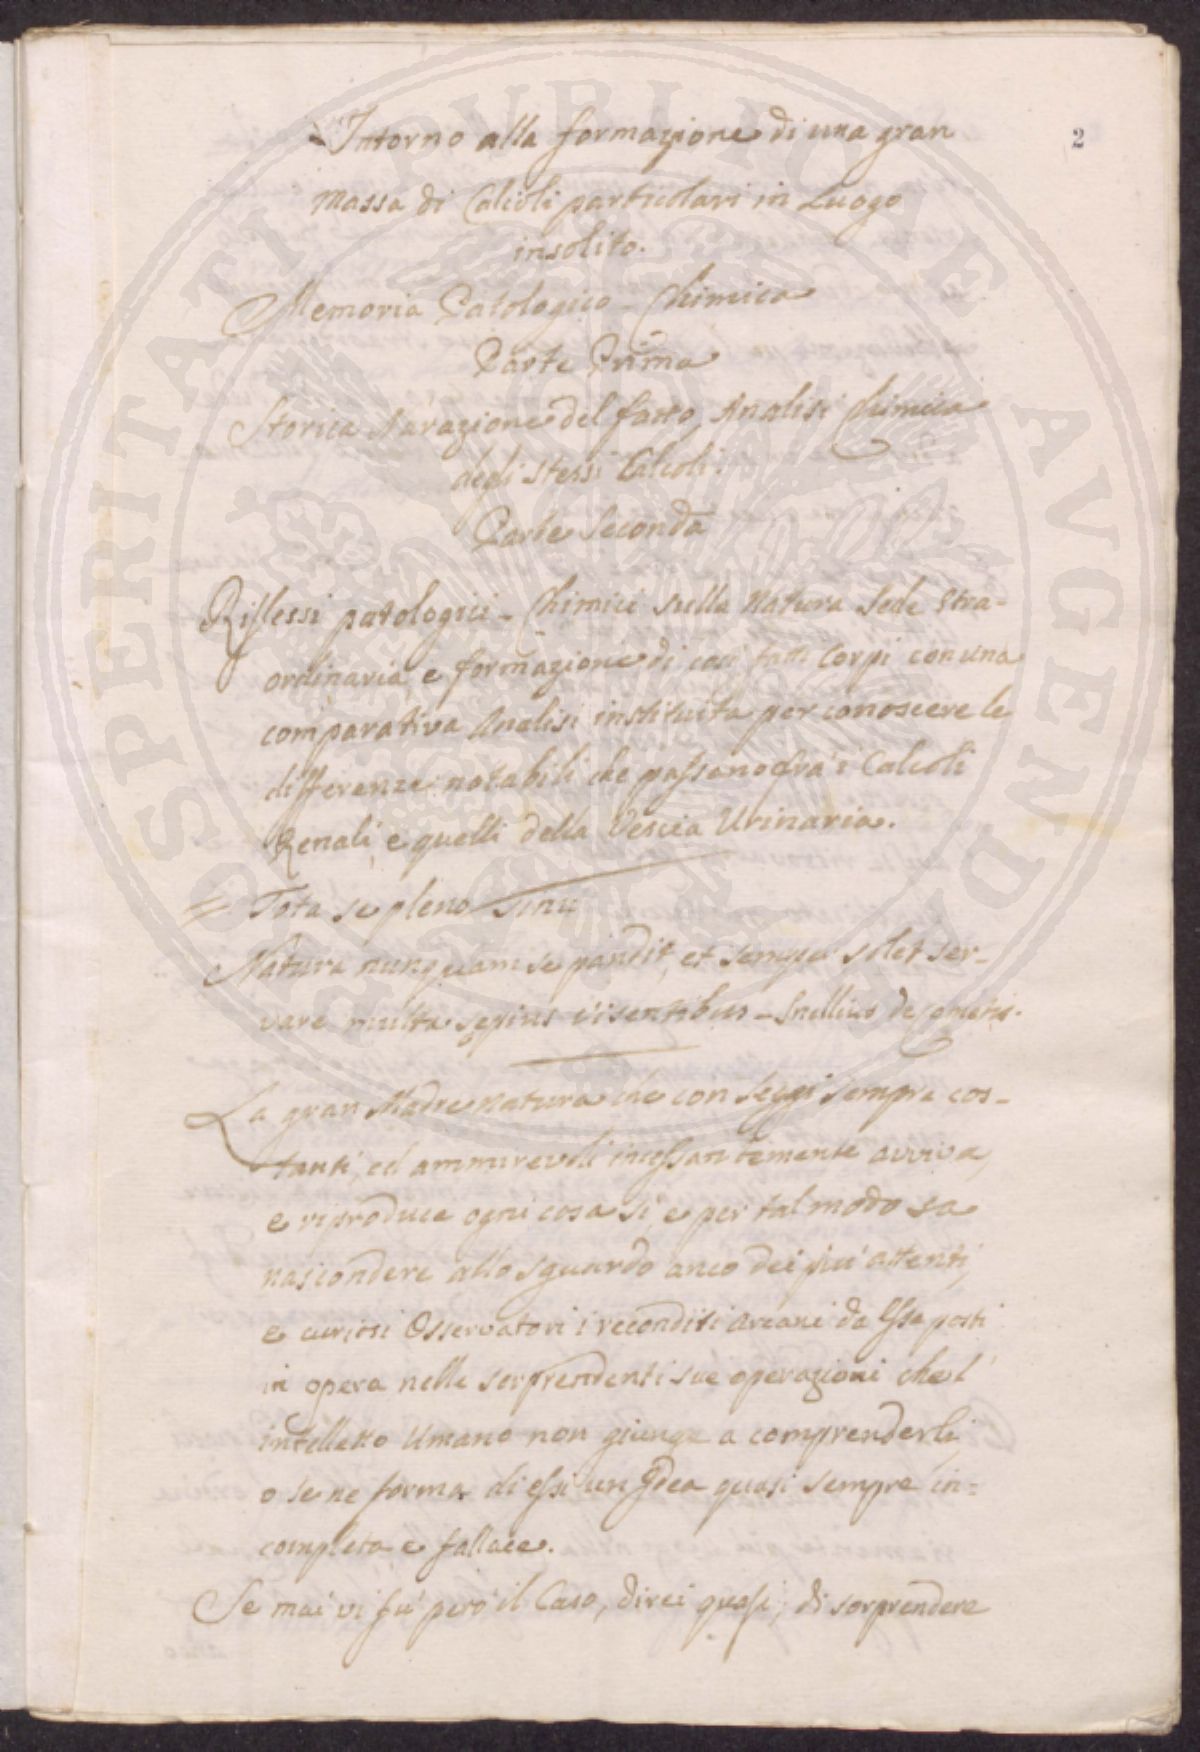 2
Intorno alla formazione di una gran
massa di Calcoli particolari in Luogo
insolito.
Memoria Patologico-Chimica
Parte Prima
Storica Narazione del fatto, Analisi Chimica
degli stessi Calcoli.
Parte Seconda
Riflessi patologici-Chimici sulla Natura Sede stra-
ordinaria, e formazione di così fatti Corpi con una
comparativa Analisi instituita per conoscere le
differenze notabili che passano frà i Calcoli
Renali, e quelli della Vescia Urinaria.
= Tota se pleno Sinu
Natura nunquam se pandit, et semper solet ser-
vare multa sepius visentibus - Snellius de Cometis.
La gran Madre natura che con Leggi sempre cos-
tanti, ed ammirevoli incessantemente avviva,
e riproduce ogni cosa sì, e per tal modo sa
nascondere allo sguardo anco dei più attenti,
e curiosi Osservatori i reconditi arcani da Essa posti
in opera nelle sorprendenti sue operazioni che l'
intelletto Umano non giunge a comprenderli,
o se ne forma di essi un Idea quasi sempre in=
completa e fallace.
Se mai vi fù però il Caso, direi quasi, di sorprendere
PROSPERITATI PVBLICAE AVGENDAE